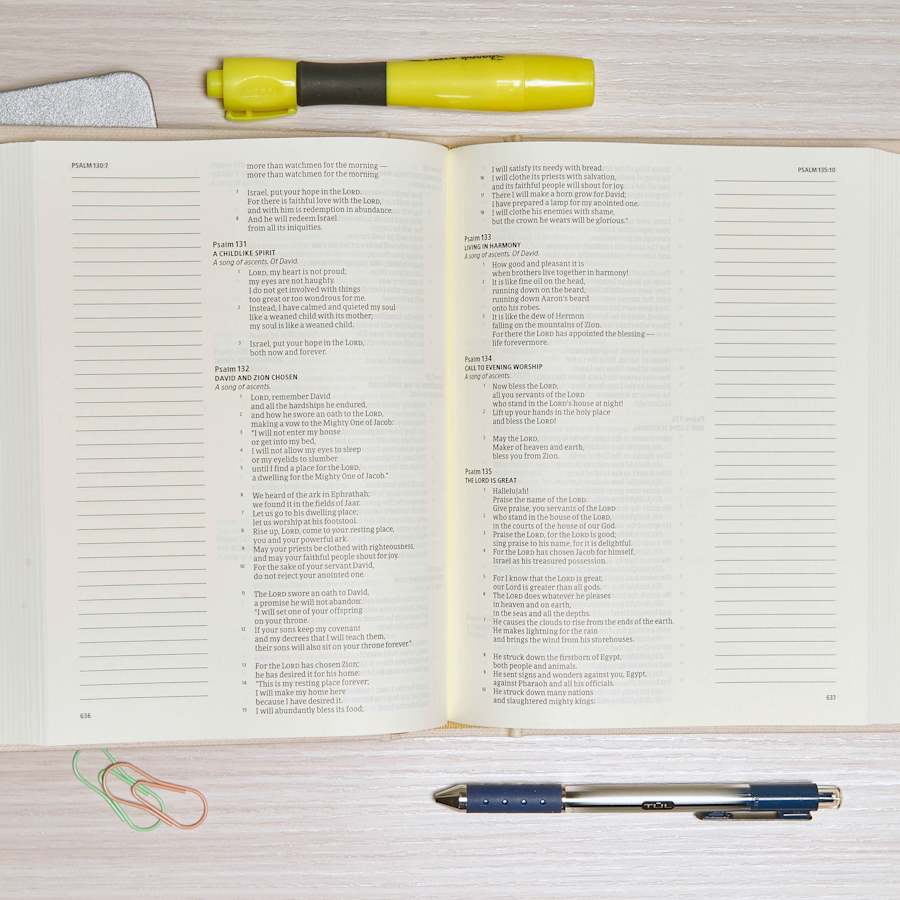 Sharpie
PSALM 130:7
more than watchmen for the morning —
more than watchmen for the morning.
7 Israel, put your hope in the LORD.
For there is faithful love with the LORD,
and with him is redemption in abundance.
8 And he will redeem Israel
from all its iniquities.
Psalm 131
A CHILDLIKE SPIRIT
A song of ascents. Of David.
1 LORD, my heart is not proud;
my eyes are not haughty.
I do not get involved with things
too great or too wondrous for me.
2 Instead, I have calmed and quieted my soul
like a weaned child with its mother;
my soul is like a weaned child.
3 Israel, put your hope in the LORD,
both now and forever.
Psalm 132
DAVID AND ZION CHOSEN
A song of ascents.
1 LORD, remember David
and all the hardships he endured,
2 and how he swore an oath to the LORD,
making a vow to the Mighty One of Jacob:
3 "I will not enter my house
or get into my bed,
4 I will not allow my eyes to sleep
or my eyelids to slumber
5 until I find a place for the LORD,
a dwelling for the Mighty One of Jacob."
6 We heard of the ark in Ephrathah;
we found it in the fields of Jaar.
7 Let us go to his dwelling place;
let us worship at his footstool.
8 Rise up, LORD, come to your resting place,
you and your powerful ark.
9 May your priests be clothed with righteousness,
and may your faithful people shout for joy.
10 For the sake of your servant David,
do not reject your anointed one.
11 The LORD swore an oath to David,
a promise he will not abandon:
"I will set one of your offspring
on your throne.
12 If your sons keep my covenant
and my decrees that I will teach them,
their sons will also sit on your throne forever."
13 For the LORD has chosen Zion;
he has desired it for his home:
14 "This is my resting place forever;
I will make my home here
because I have desired it.
15 I will abundantly bless its food;
636
PSALM 135:10
I will satisfy its needy with bread.
16 I will clothe its priests with salvation,
and its faithful people will shout for joy.
17 There I will make a horn grow for David;
I have prepared a lamp for my anointed one.
18 I will clothe his enemies with shame,
but the crown he wears will be glorious."
Psalm 133
LIVING IN HARMONY
A song of ascents of David.
1 How good and pleasant it is
when brothers live together in harmony!
2 It is like fine oil on the head,
running down on the beard,
running down Aaron's beard
onto his robes.
3 It is like the dew of Hermon
falling on the mountains of Zion.
For there the LORD has appointed the blessing —
life forevermore.
Psalm 134
CALL TO EVENING WORSHIP
A song of ascents.
1 Now bless the LORD,
all you servants of the LORD
who stand in the LORD's house at night!
2 Lift up your hands in the holy place
and bless the LORD!
3 May the LORD,
Maker of heaven and earth,
bless you from Zion.
Psalm 135
THE LORD IS GREAT
1 Hallelujah!
Praise the name of the LORD.
Give praise, you servants of the LORD
2 who stand in the house of the LORD,
in the courts of the house of our God.
3 Praise the LORD, for the LORD is good;
sing praise to his name, for it is delightful.
4 For the LORD has chosen Jacob for himself,
Israel as his treasured possession.
5 For I know that the LORD is great;
our Lord is greater than all gods.
6 The LORD does whatever he pleases
in heaven and on earth,
in the seas and all the depths.
7 He causes the clouds to rise from the ends of the earth.
He makes lightning for the rain
and brings the wind from his storehouses.
8 He struck down the firstborn of Egypt,
both people and animals.
9 He sent signs and wonders against you, Egypt,
against Pharaoh and all his officials.
10 He struck down many nations
and slaughtered mighty kings:
637
TUL